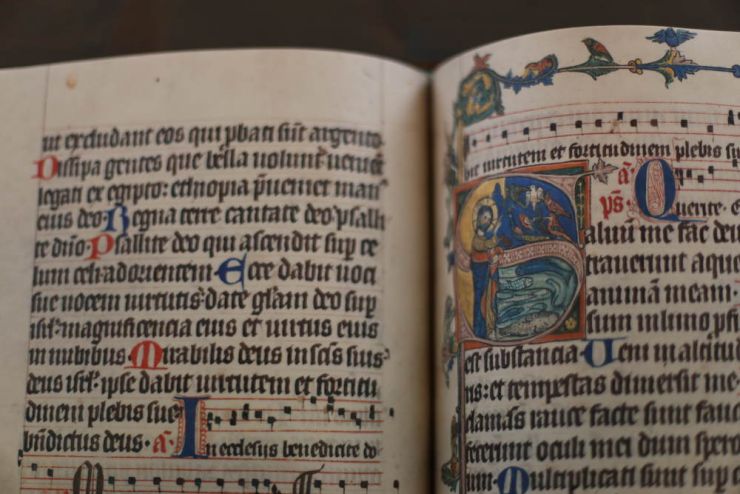 ut excludant eos qui ꝓbati sūt argento
Dissipa gentes que bella uolunt uenient
legati ex egipto: ethiopia p̄ueniet man
eius deo. Regna terre cantate deo psalli
te dn̄o. Psallite deo qui ascendit sup̄ ce
lum celi ad orientem Ecce dabit uoci
sue uocem uirtutis date gl̄am deo sup̄
isrl̄: magnificencia eius et uirtus eius
in nubibus Mirabilis deus in sc̄is suis
deus isrl̄: ipse dabit uirtutem et fortitu
dinem plebis sue
bn̄dictus deus. a͞. In ecclesiis benedicite do
bit uirtutem et fortitudinem plebis su
a͞.
ps̄. Querite. e
Saluū me fac deu
trauerunt aque
animā meam.
sum in limo p̄fi
est substancia. Ueni in altitud
ris: et tempestas dimersit me.
clamās rauce facte sunt fauc
fecerunt oculi mei dum spero
um. Multiplicati sunt sup̄ c